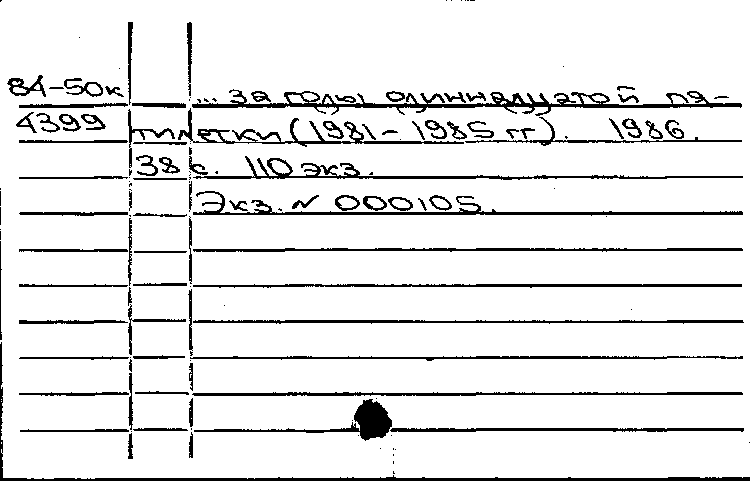 84-50к ... за годы одиннадцатой пя-
4399 тилетки (1981-1985 гг). 1986.
38 с. 110 экз.
Экз. № 000105.